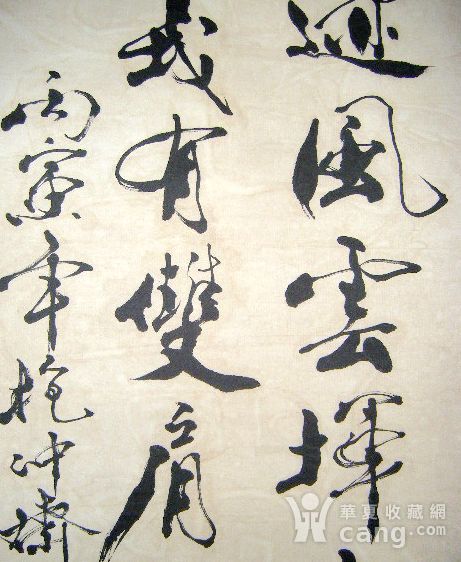 迹風雲揮
我有雙肩
丙寅年抱冲齋
華夏收藏網
cang.com